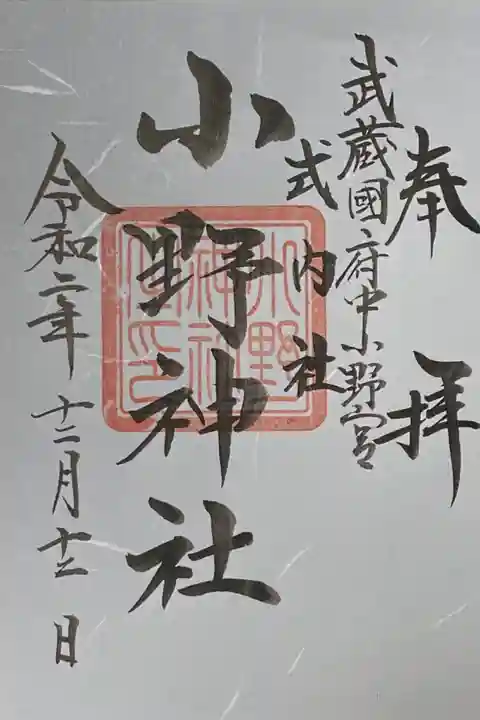 奉拝
武蔵國府中小野宮
式内社
小野神社
令和二年十二月十三日